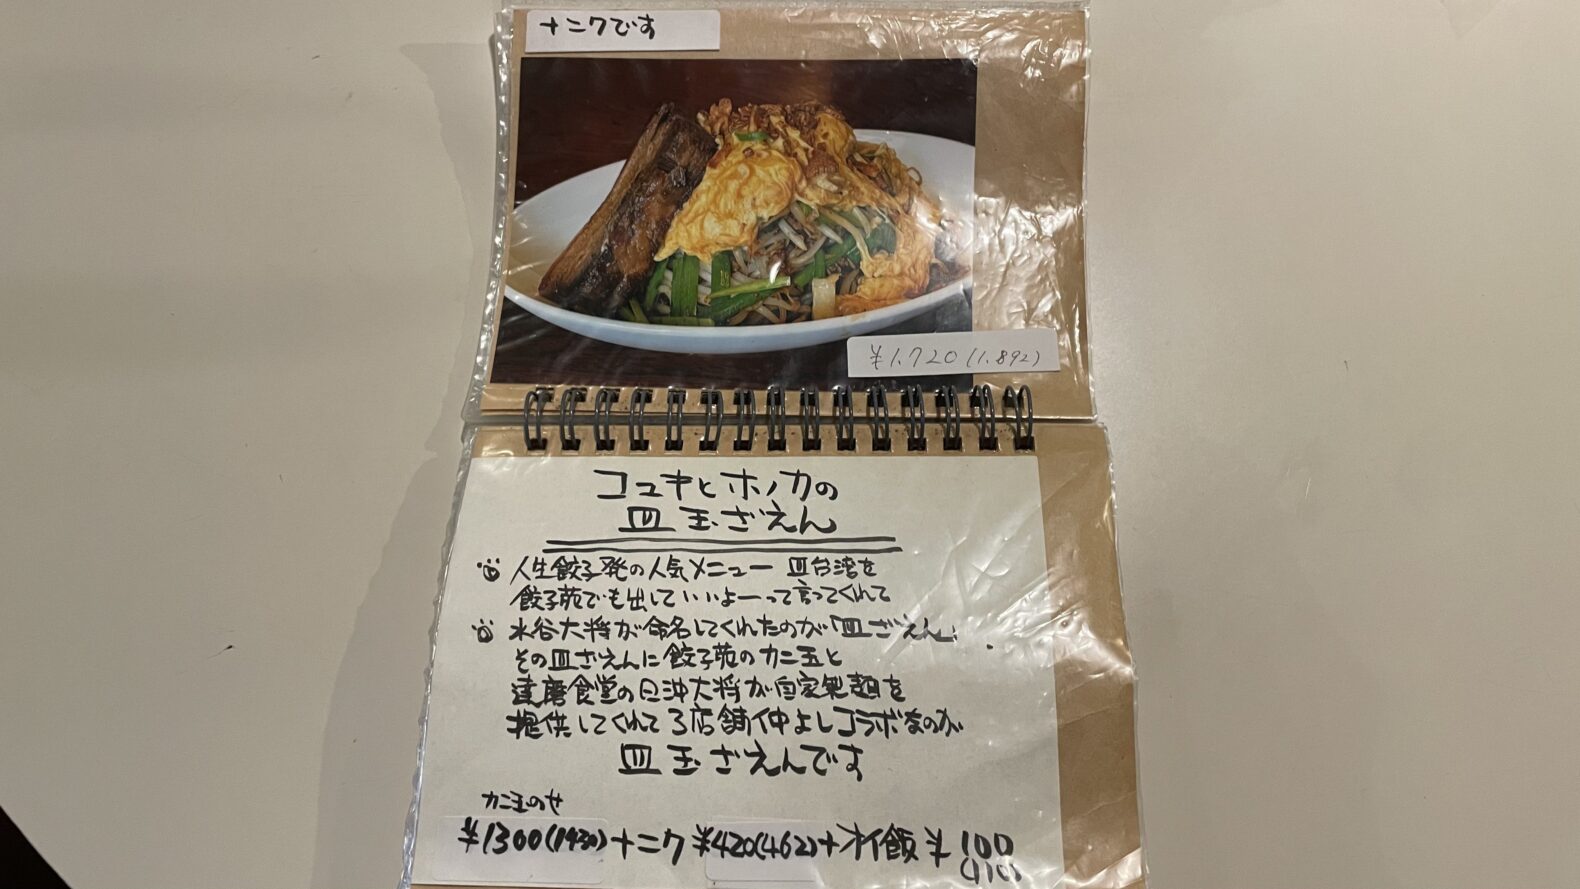 ナニクです
¥1.720(1.892)
コユキとホノカの
皿玉ざえん
人生餃子発の人気メニュー 皿台湾を
餃子苑でも出していいよーって言ってくれて
水谷大将が命名してくれたのが「皿ざえん」
その皿ざえんに餃子苑のカニ玉と
達磨食堂の日沖大将が自家製麺を
提供してくれて3店舗仲よしコラボなのが
皿玉ざえんです
カニ玉のせ
¥1300(1430)+ナニク ¥420(462)+オイ飯 ¥100
(110)